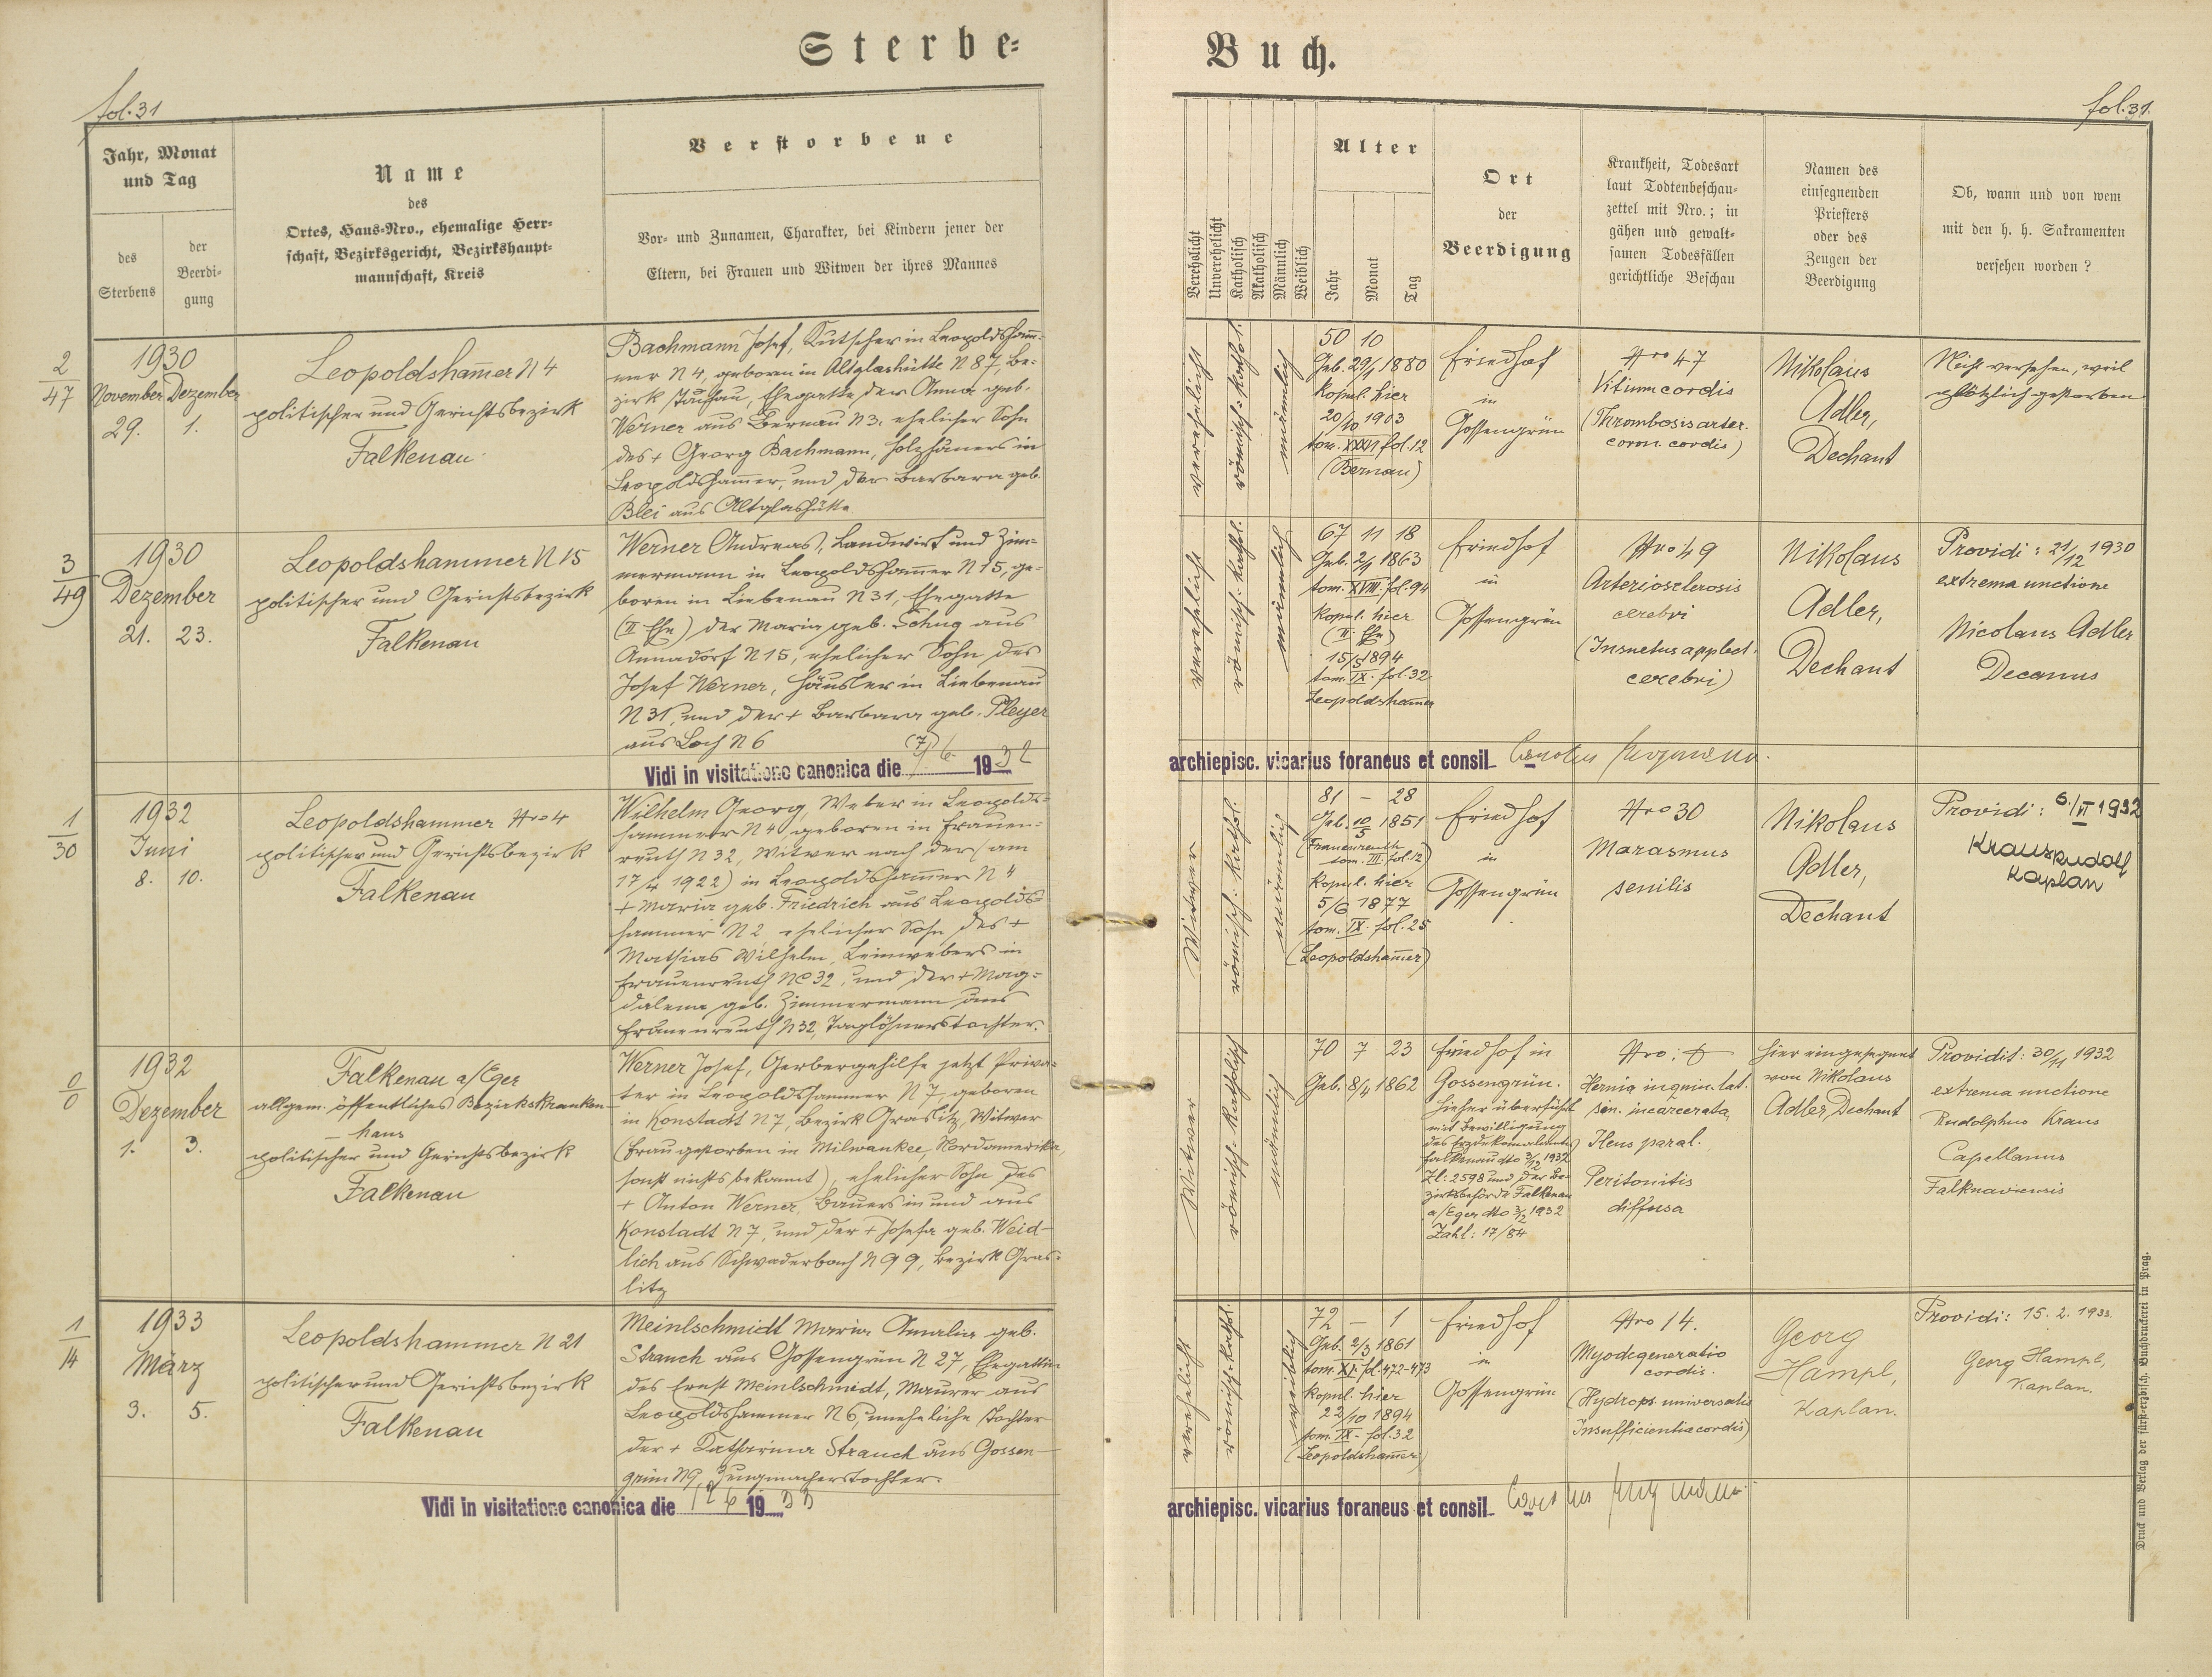 Sterbe-
Buch.
fol. 31
fol. 31.
Jahr, Monat
und Tag
des
Sterbens
der
Beerdi-
gung
Name
des
Ortes, Haus-Nro., ehemalige Herr-
schaft, Bezirksgericht, Bezirkshaupt-
mannschaft, Kreis
Verstorbene
Vor- und Zunamen, Charakter, bei Kindern jener der
Eltern, bei Frauen und Witwen der ihres Mannes
Verehelicht
Unverehelicht
Katholisch
Akatholisch
Männlich
Weiblich
Alter
Jahr
Monat
Tag
Ort
der
Beerdigung
Krankheit, Todesart
laut Todtenbeschau-
zettel mit Nro.; in
gähen und gewalt-
samen Todesfällen
gerichtliche Beschau
Namen des
einsegnenden
Priesters
oder des
Zeugen der
Beerdigung
Ob, wann und von wem
mit den h. h. Sakramenten
versehen worden?
2
47
1930
November Dezember
29. 1.
Leopoldsham̄er N 4
politischer und Gerichtsbezirk
Falkenau
Bachmann Josef, Kutscher in Leopoldsham̄-
mer N 4, geboren in Altglashütte N 87, Be-
zirk Tachau, Ehegatte der Anna geb.
Werner aus Bernau N 3, ehelicher Sohn
des + Georg Bachmann, Holzhauers in
Leopoldsham̄er, und der Barbara geb.
Blei aus Altglashütte
verehelicht
römisch-kathol.
männlich
50 10
Geb. 29/1 1880
Kopul. hier
20/10 1903
tom. XXVI fol. 12
(Bernau)
Friedhof
in
Gossengrün
Nro 47
Vitium cordis
(Thrombosis arter.
coron. cordis)
Nikolaus
Adler,
Dechant
Nicht versehen, weil
plötzlich gestorben
3
49
1930
Dezember
21. 23.
Leopoldshammer N 15
politischer und Gerichtsbezirk
Falkenau
Werner Andreas, Landwirt und Zim-
mermann in Leopoldsham̄er N 15, ge-
boren in Liebenau N 31, Ehegatte
(II Ehe) der Maria geb. Schug aus
Annadorf N 15, ehelicher Sohn des
Josef Werner, Häusler in Liebenau
N 31, und der + Barbara geb. Pleyer
aus Loch N 6
verehelicht
römisch-kathol.
männlich
67 11 18
Geb. 2/1 1863
tom. XVIII. fol. 94
Kopul. hier
(II. Ehe)
15/5 1894
tom. IX. fol. 32
Leopoldsham̄er
Friedhof
in
Gossengrün
Nro 49
Arteriosclerosis
cerebri
cerebri)
Nikolaus
Adler,
Dechant
Providi: 21/12 1930
extrema unctione
Nicolaus Adler
Decanus
Vidi in visitatione canonica die 6 1932
archiepisc. vicarius foraneus et consil.
1
30
1932
Juni
8. 10.
Leopoldshammer Nro 4
politischer und Gerichtsbezirk
Falkenau
Wilhelm Georg, Weber in Leopolds-
hammer N 4, geboren in Frauen-
reuth N 32, Witwer nach der (am
17/4 1922) in Leopoldsham̄er N 4
+ Maria geb. Friedrich aus Leopolds-
hammer N 2 ehelicher Sohn des +
Mathias Wilhelm, Leinwebers in
Frauenreuth No 32, und der + Mag-
dalena geb. Zimmermann aus
Frauenreuth N 32, Taglöhnerstochter.
Witwer
römisch-kathol.
männlich
81 – 28
Geb. 10/5 1851
(Frauenreuth
tom. III. fol. 12)
Kopul. hier
5/6 1877
tom. IX. fol. 25
(Leopoldsham̄er)
Friedhof
in
Gossengrün
Nro 30
Marasmus
senilis
Nikolaus
Adler,
Dechant
Providi: 6./VI 1932
Kraus Rudolf
Kaplan
0
0
1932
Dezember
1. 3.
Falkenau a/Eger
allgem. öffentliches Bezirkskranken-
haus
politischer und Gerichtsbezirk
Falkenau
Werner Josef, Gerbergehilfe jetzt Priva-
ter in Leopoldshammer N 7, geboren
in Konstadt N 7, Bezirk Graslitz, Witwer
(Frau gestorben in Milwaukee, Nordamerika,
sonst nichts bekannt), ehelicher Sohn des
+ Anton Werner, Bauers in und aus
Konstadt N 7, und der + Josefa geb. Weid-
lich aus Schwaderbach N 99, Bezirk Gras-
litz
Witwer
römisch-katholisch
männlich
70 7 23
Geb. 8/4 1862
Friedhof in
Gossengrün.
Hieher überführt
mit Bewilligung
des
Falkenau dto 3/12 1932
Zl: 2598 und der Be-
zirksbehörde Falkenau
a/Eger dto 3/12 1932
Zahl: 17/84
Nro:
Hernia inguin. lat.
sin. incarcerata,
Ileus paral.
Peritonitis
diffusa
Hier eingesegnet
von Nikolaus
Adler, Dechant
Providit: 30/11 1932
extrema unctione
Rudolphus Kraus
Capellanus
Falknaviensis
1
14
1933
März
3. 5.
Leopoldshammer N 21
politischer und Gerichtsbezirk
Falkenau
Meinlschmidt Maria Amalia geb.
Strauch aus Gossengrün N 27, Ehegattin
des Ernst Meinlschmidt, Maurer aus
Leopoldshammer N 6, uneheliche Tochter
der + Katharina Strauch aus Gossen-
grün N 9, Zeugmacherstochter.
verehelicht
römisch-kathol.
weiblich
72 – 1
Geb. 2/3 1861
tom. XI. fol. 472-473
Kopul. hier
22/10 1894
tom. IX. fol. 32
(Leopoldsham̄er)
Friedhof
in
Gossengrün
Nro 14.
Myodegeneratio
cordis.
(Hydrops universalis
Insufficientia cordis)
Georg
Hampl,
Kaplan.
Providi: 15. 2. 1933.
Georg Hampl,
Kaplan.
Vidi in visitatione canonica die 12 6 1933
archiepisc. vicarius foraneus et consil.
Druck und Verlag der fürst-erzbisch. Buchdruckerei in Prag.